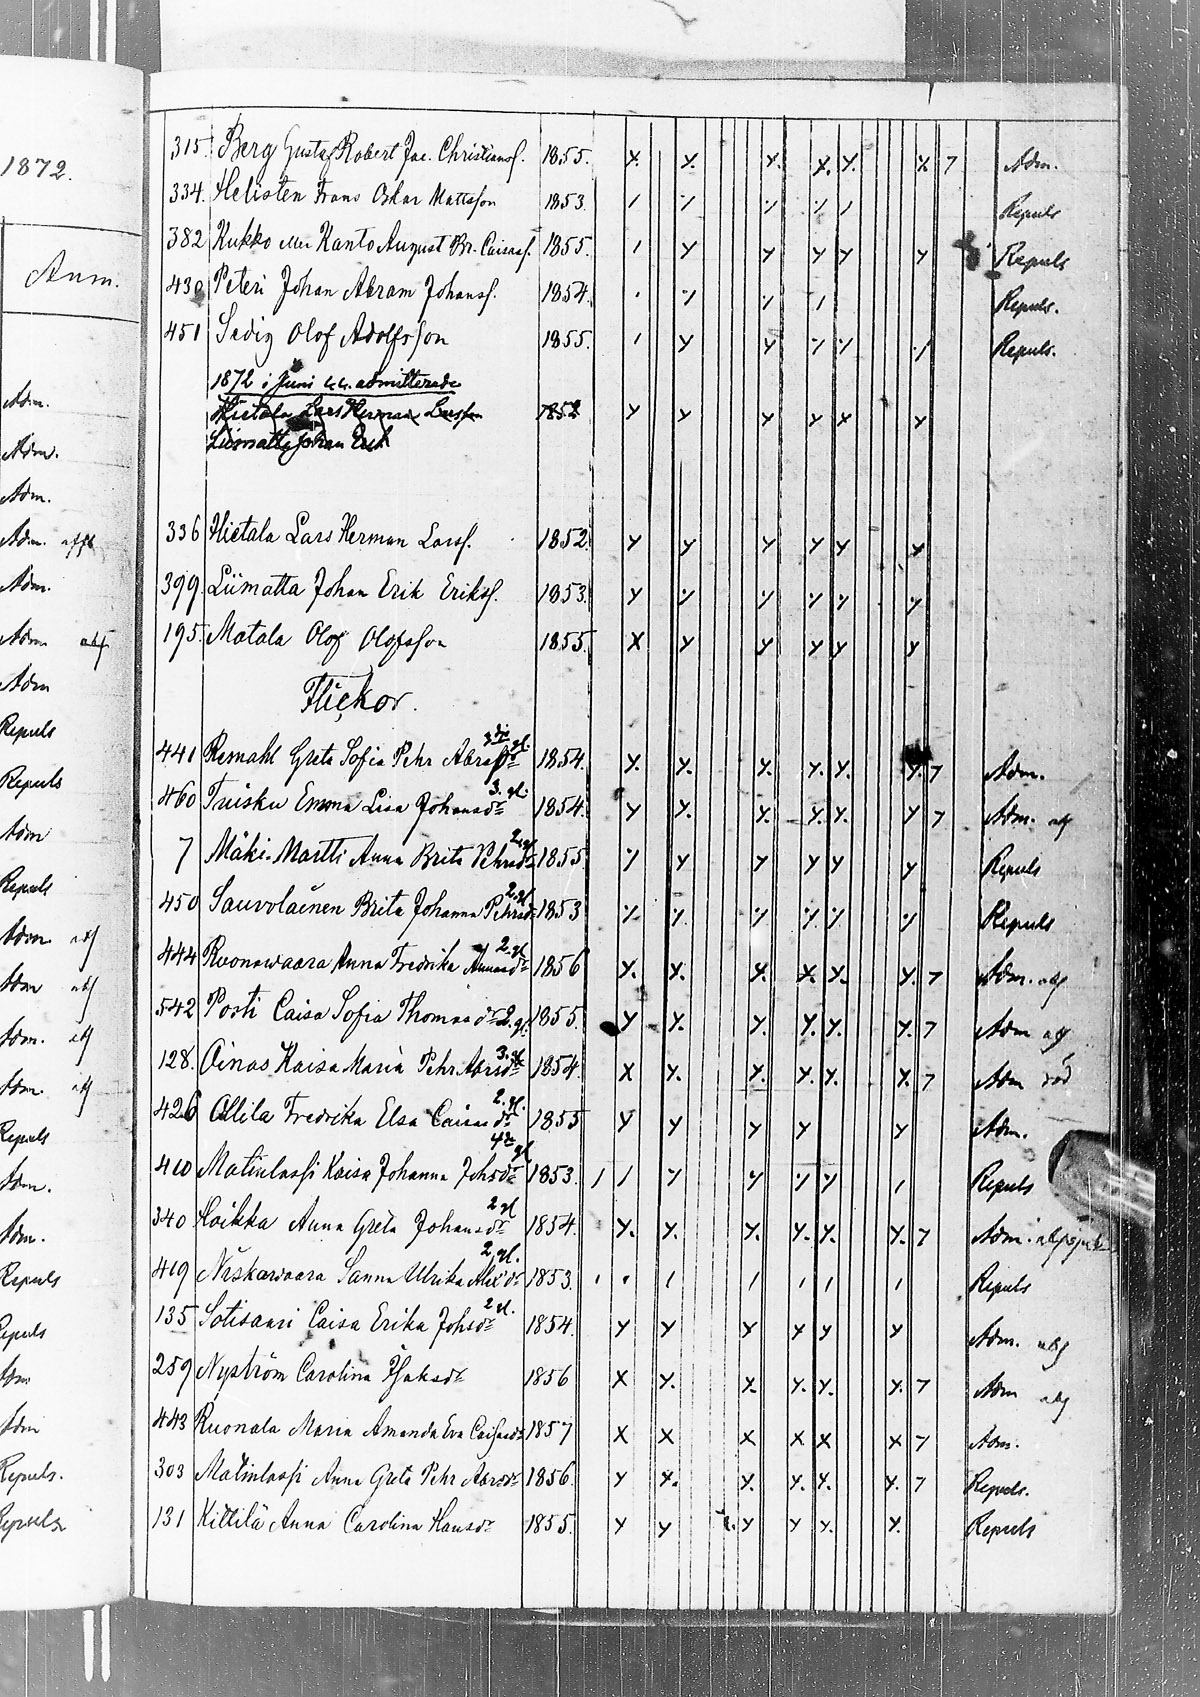 1872.
Anm.
Adm.
Adm.
Adm.
Adm.
Adm.
Adm
Adm
Repuls
Repuls
Adm
Repuls
Adm.
Adm
Adm.
Adm.
Repuls
Adm.
Adm.
Repuls
Repuls
Adm
Adm
Repuls.
Repuls
315. Berg Gustaf Robert Jac. Christiansf. 1855. X. X. X. X. X. X 7 Adm.
334. Helisten Frans Oskar Mattsson 1853. / ٪ ٪ ٪ / Repuls
382 Kukko eller Kanto August Br. Caisasf. 1855. / Y Y Y Y Y Repuls
430 Peteri Johan Abram Johansf. 1854. Repuls.
451 Sadig Olof Adolfsson 1855. / Y Y ٪ ٪ ٪ Repuls.
1872 i Juni admitterade
Hietala Lars Herman Larsson 1852 Y Y Y Y X Y
Liimatta Johan Erik
336 Hietala Lars Herman Larsf. 1852. Y Y Y Y Y Y
399. Liimatta Johan Erik Eriksf. 1853. Y ٪ ٪ ٪ ٪ ٪
195. Matala Olof Olofsson 1855. X Y Y Y Y Y
Flickor.
441 Remahl Greta Sofia Pehr Abrasdr 3dje gl. 1854. Y. Y. Y. Y. Y. Y. 7 Adm.
460 Tuisku Emma Lisa Johansdr 3. gl. 1854. Y Y. Y. Y. Y. Y 7 Adm.
7 Mäki-Martti Anna Brita Pehrsdr 2. gl. 1855. ٪ Y Y Y Y Y Repuls
450 Sauvolainen Brita Johanna Pehrsdr 2. gl. 1853 ٪ ٪ ٪ ٪ ٪ ٪ Repuls
444 Ruonawaara Anna Fredrika Annasdr 2. gl. 1856 Y. X. X. X. X. Y. 7 Adm.
542 Posti Caisa Sofia Thomasdr 2. gl. 1855. Y Y. Y. Y. Y. Y. 7 Adm
128. Ainas Kaisa Maria Pehr Abrsdr 3. gl. 1854. X Y. Y. Y. Y. Y. 7 Adm
426 Ollila Fredrika Elsa Caisasdr 2. gl. 1855 Y Y Y Y Y Adm.
410 Matinlassi Kaisa Johanna Johsdr 4de gl 1853. / / ٪ ٪ ٪ ٪ / Repuls
340. Loikka Anna Greta Johansdr 2 gl 1854. Y. Y. Y. Y. Y. Y. 7 Adm.
419 Niskawaara Sanna Ulrika Alexdr 2. gl. 1853. / / / / / Repuls
135 Sotisaari Caisa Erika Johsdr 2 gl. 1854. Y Y Y Y Y Y Adm.
259 Nyström Carolina Isaksdr 1856 X Y. Y. Y. Y. Y. 7 Adm
443 Ruonala Maria Amanda Eva Caisasdr 1857 X X X X X X 7 Adm.
303 Matinlassi Anna Greta Pehr Abrsdr 1856. Y Y. Y. Y. Y. Y. 7 Repuls.
131 Kittilä Anna Carolina Hansdr 1855. Y Y Y Y Y. Y. Repuls